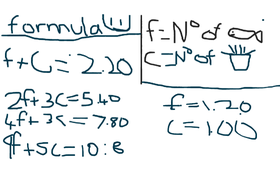 formula
f+C=2.20
2f+3C=5.40
4f+3c=7.80
f+5C=10:8
f=Nº of
C=Nº of
f=1.20
C=100